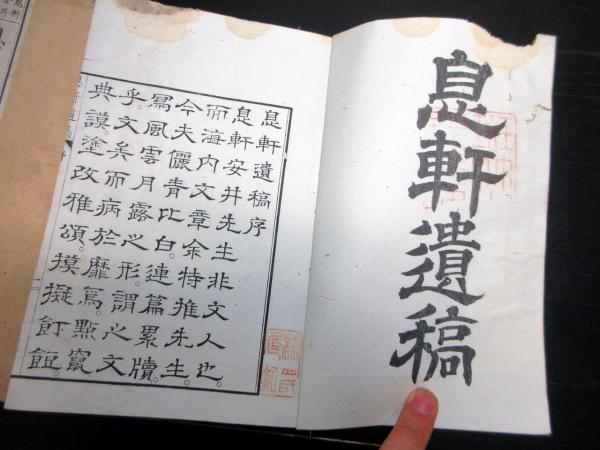 息軒遺稿
息軒遺稿序
息軒安井先生非文人也。
而海内文章僉特推先生。
今夫儷青比白。連篇累牘。
寫風雲月露之形。謂之文
乎。文矣而病於靡焉。點竄
典謨。塗改雅頌。摸擬飣餖